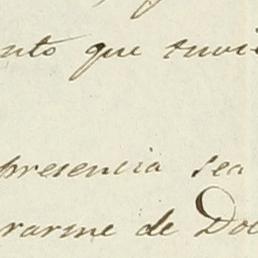 nto que tuvi
presencia sea
rarme de Do